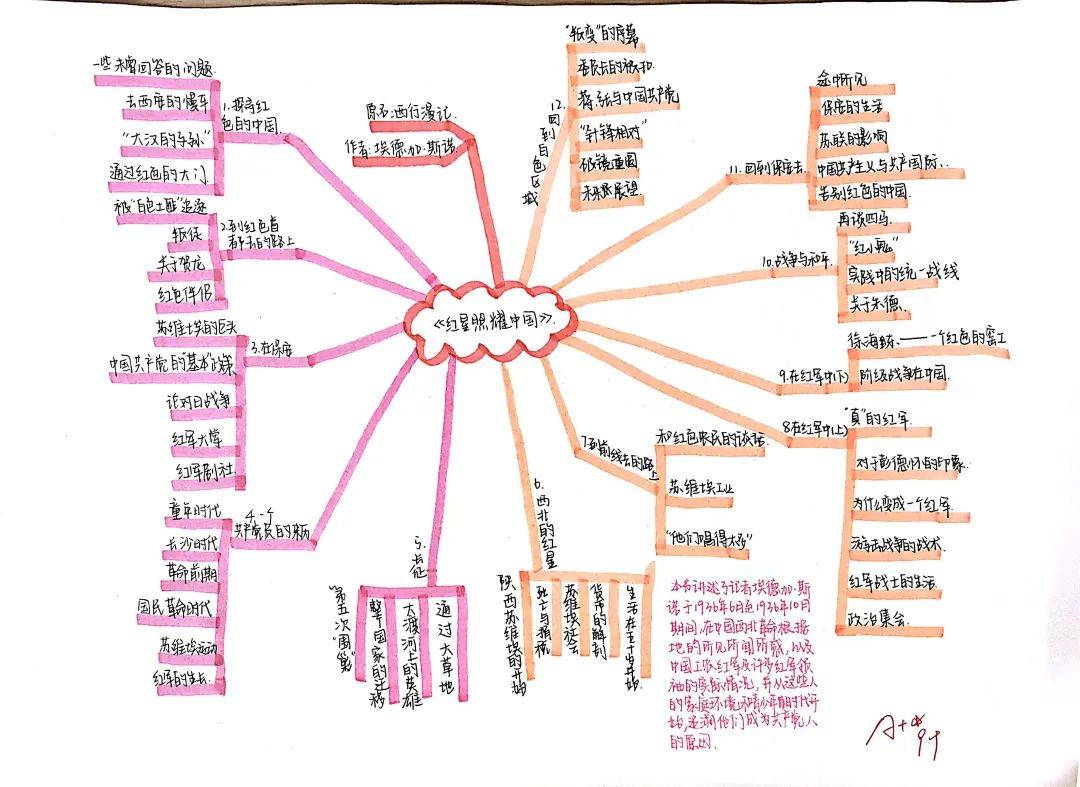 《红星照耀中国》
原名:西行漫记
作者:埃德加·斯诺
1.探寻红
色的中国
一些未曾回答的问题
去西安的慢车
"大汉的子孙"
通过红色的大门
2.到红色首
都去的路上
被"白色土匪"追逐
叛徒
关于贺龙
红色伴侣
3.在保安
苏维埃的巨头
中国共产党的"基本"政策
论对日战争
红军大学
红军剧社
4.一个
共产党员的来历
童年时代
长沙时代
革命前期
国民革命时代
苏维埃运动
红军的生长
5.长征
"第五次"围剿"
整个国家的迁移
大渡河上的英雄
通过大草地
6.西北的红星
陕西苏维埃的开始
死亡与捐税
苏维埃社会
货币的解剖
生活在五十岁开始
7.到前线去的路上
和红色农民的谈话
苏维埃工业
"他们唱得太多"
8.在红军中(上)
"真"的红军
对于彭德怀的印象
为什么变成一个红军
游击战争的战术
红军战士的生活
政治集会
9.在红军中(下)
徐海东——一个红色的窑工
阶级战争在中国
10.战争与和平
再谈四马
"红小鬼"
实践中的统一战线
关于朱德
11.回到保安去
途中所见
保安的生活
苏联的影响
中国共产主义与共产国际
告别红色的中国
12.回到白色区域
"叛变"的序幕
蒋、张与中国共产党
"针锋相对"
破镜重圆
未来展望
本书讲述了记者埃德加·斯
诺于1936年6月至1936年10月
期间,在中国西北革命根据
地的所见所闻所感,以及
中国工农红军及许多红军领
袖的实际情况,并从这些人
的家庭环境和青少年时代开
始,追溯他们成为共产党人
的原因.
A+